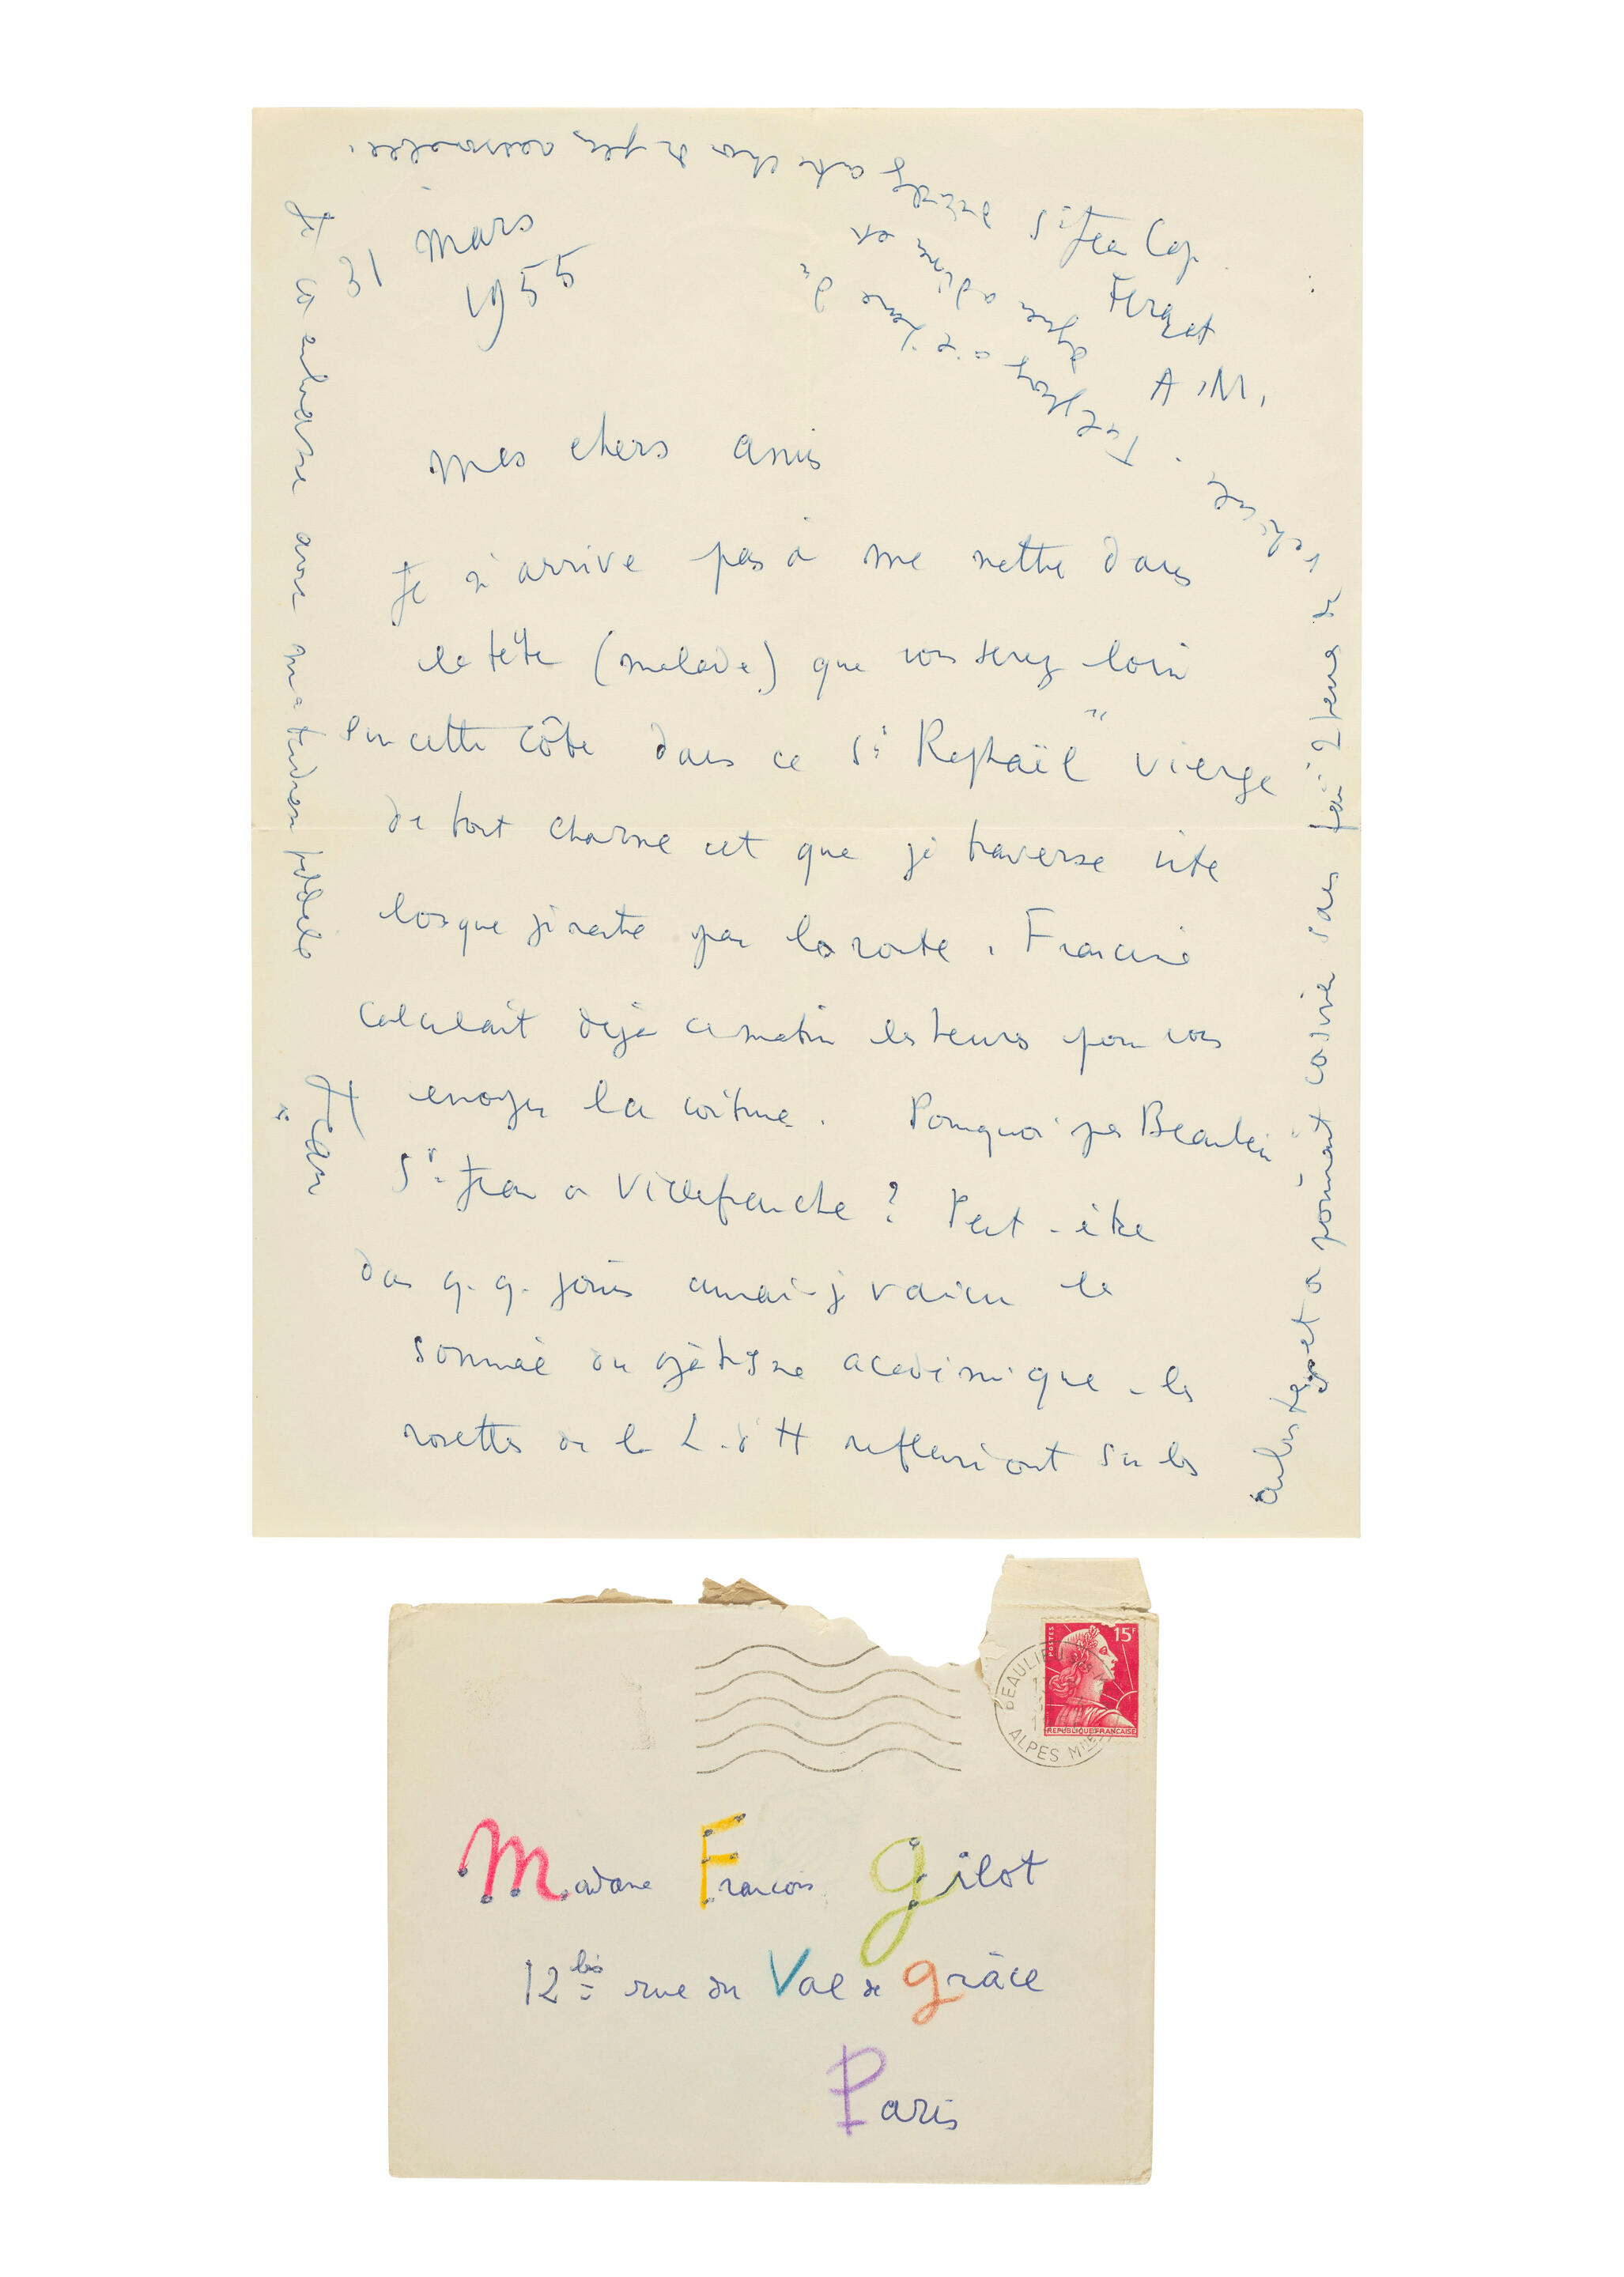 31 mars
1955
St Jean Cap
Ferrat
A.M.
Mes chers amis
Je n'arrive pas à me mettre dans
la tête (malade) que vous serez loin
sur cette côte dans ce St Raphaël vierge
de tout charme et que je traverse vite
lorsque je rentre par la route. Francine
calculait déjà ce matin les heures pour vous
envoyer la voiture. Pourquoi pas Beaulieu
St Jean ou Villefranche ? Peut-être
dans q.q. jours aurai-je vaincu le
sommeil du académique - les
rosettes de la L. d'H refleuriront sur les
et pourrait cuisiner sans faire 2 heures de
Téléphonez
décidez autre chose de plus raisonnable.
Je vous embrasse avec ma tendresse fidèle
Jean
POSTES
15F
REPUBLIQUE FRANCAISE
BEAULIEU SUR M
ALPES Mmes
Madame Francois Gilot
12 bis rue du Val de Grâce
Paris